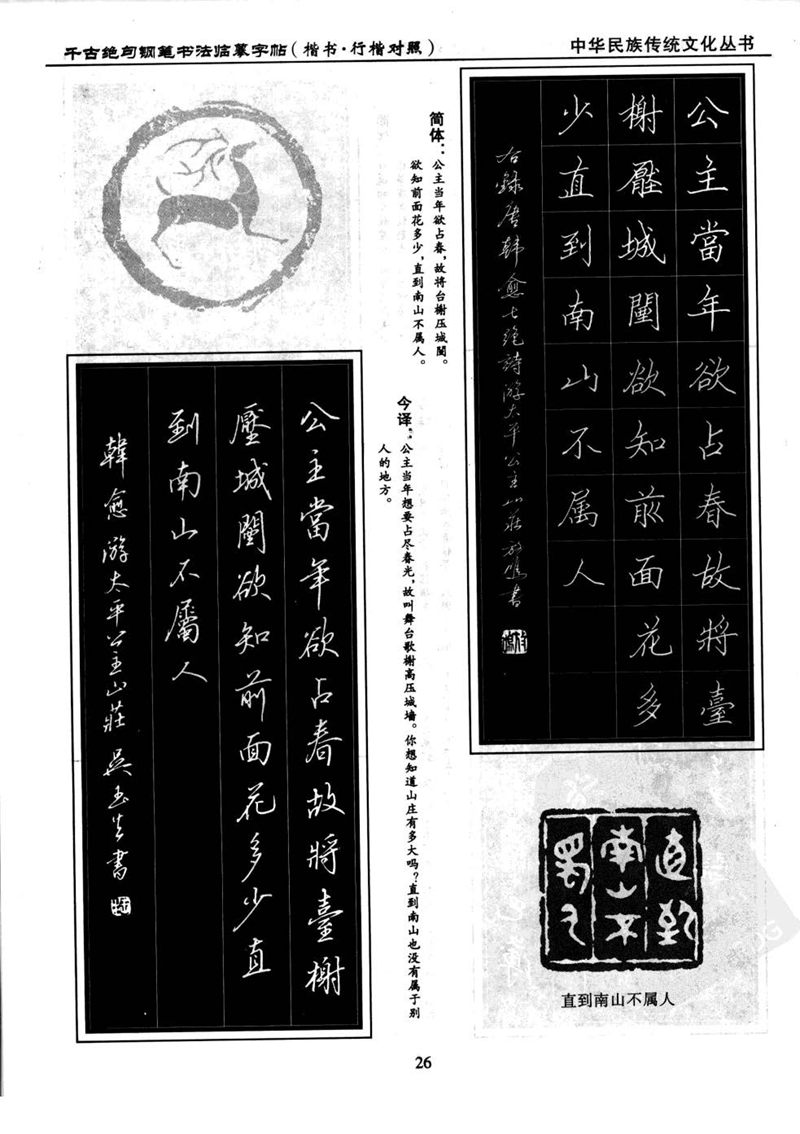 千古绝句钢笔书法临摹字帖（楷书·行楷对照）
中华民族传统文化丛书
公主當年欲占春故將臺
榭壓城闉欲知前面花多
少直到南山不属人
右録唐韩愈七绝詩游太平公主山莊
简体：公主当年欲占春，故将台榭压城闉。
欲知前面花多少，直到南山不属人。
今译：公主当年想要占尽春光，故叫舞台歌榭高压城墙。你想知道山庄有多大吗？直到南山也没有属于别
人的地方。
公主當年欲占春故將臺榭
壓城闉欲知前面花多少直
到南山不屬人
韓愈游太平公主山莊 吴玉生書
直到南山不属人
直到南山不属人
26